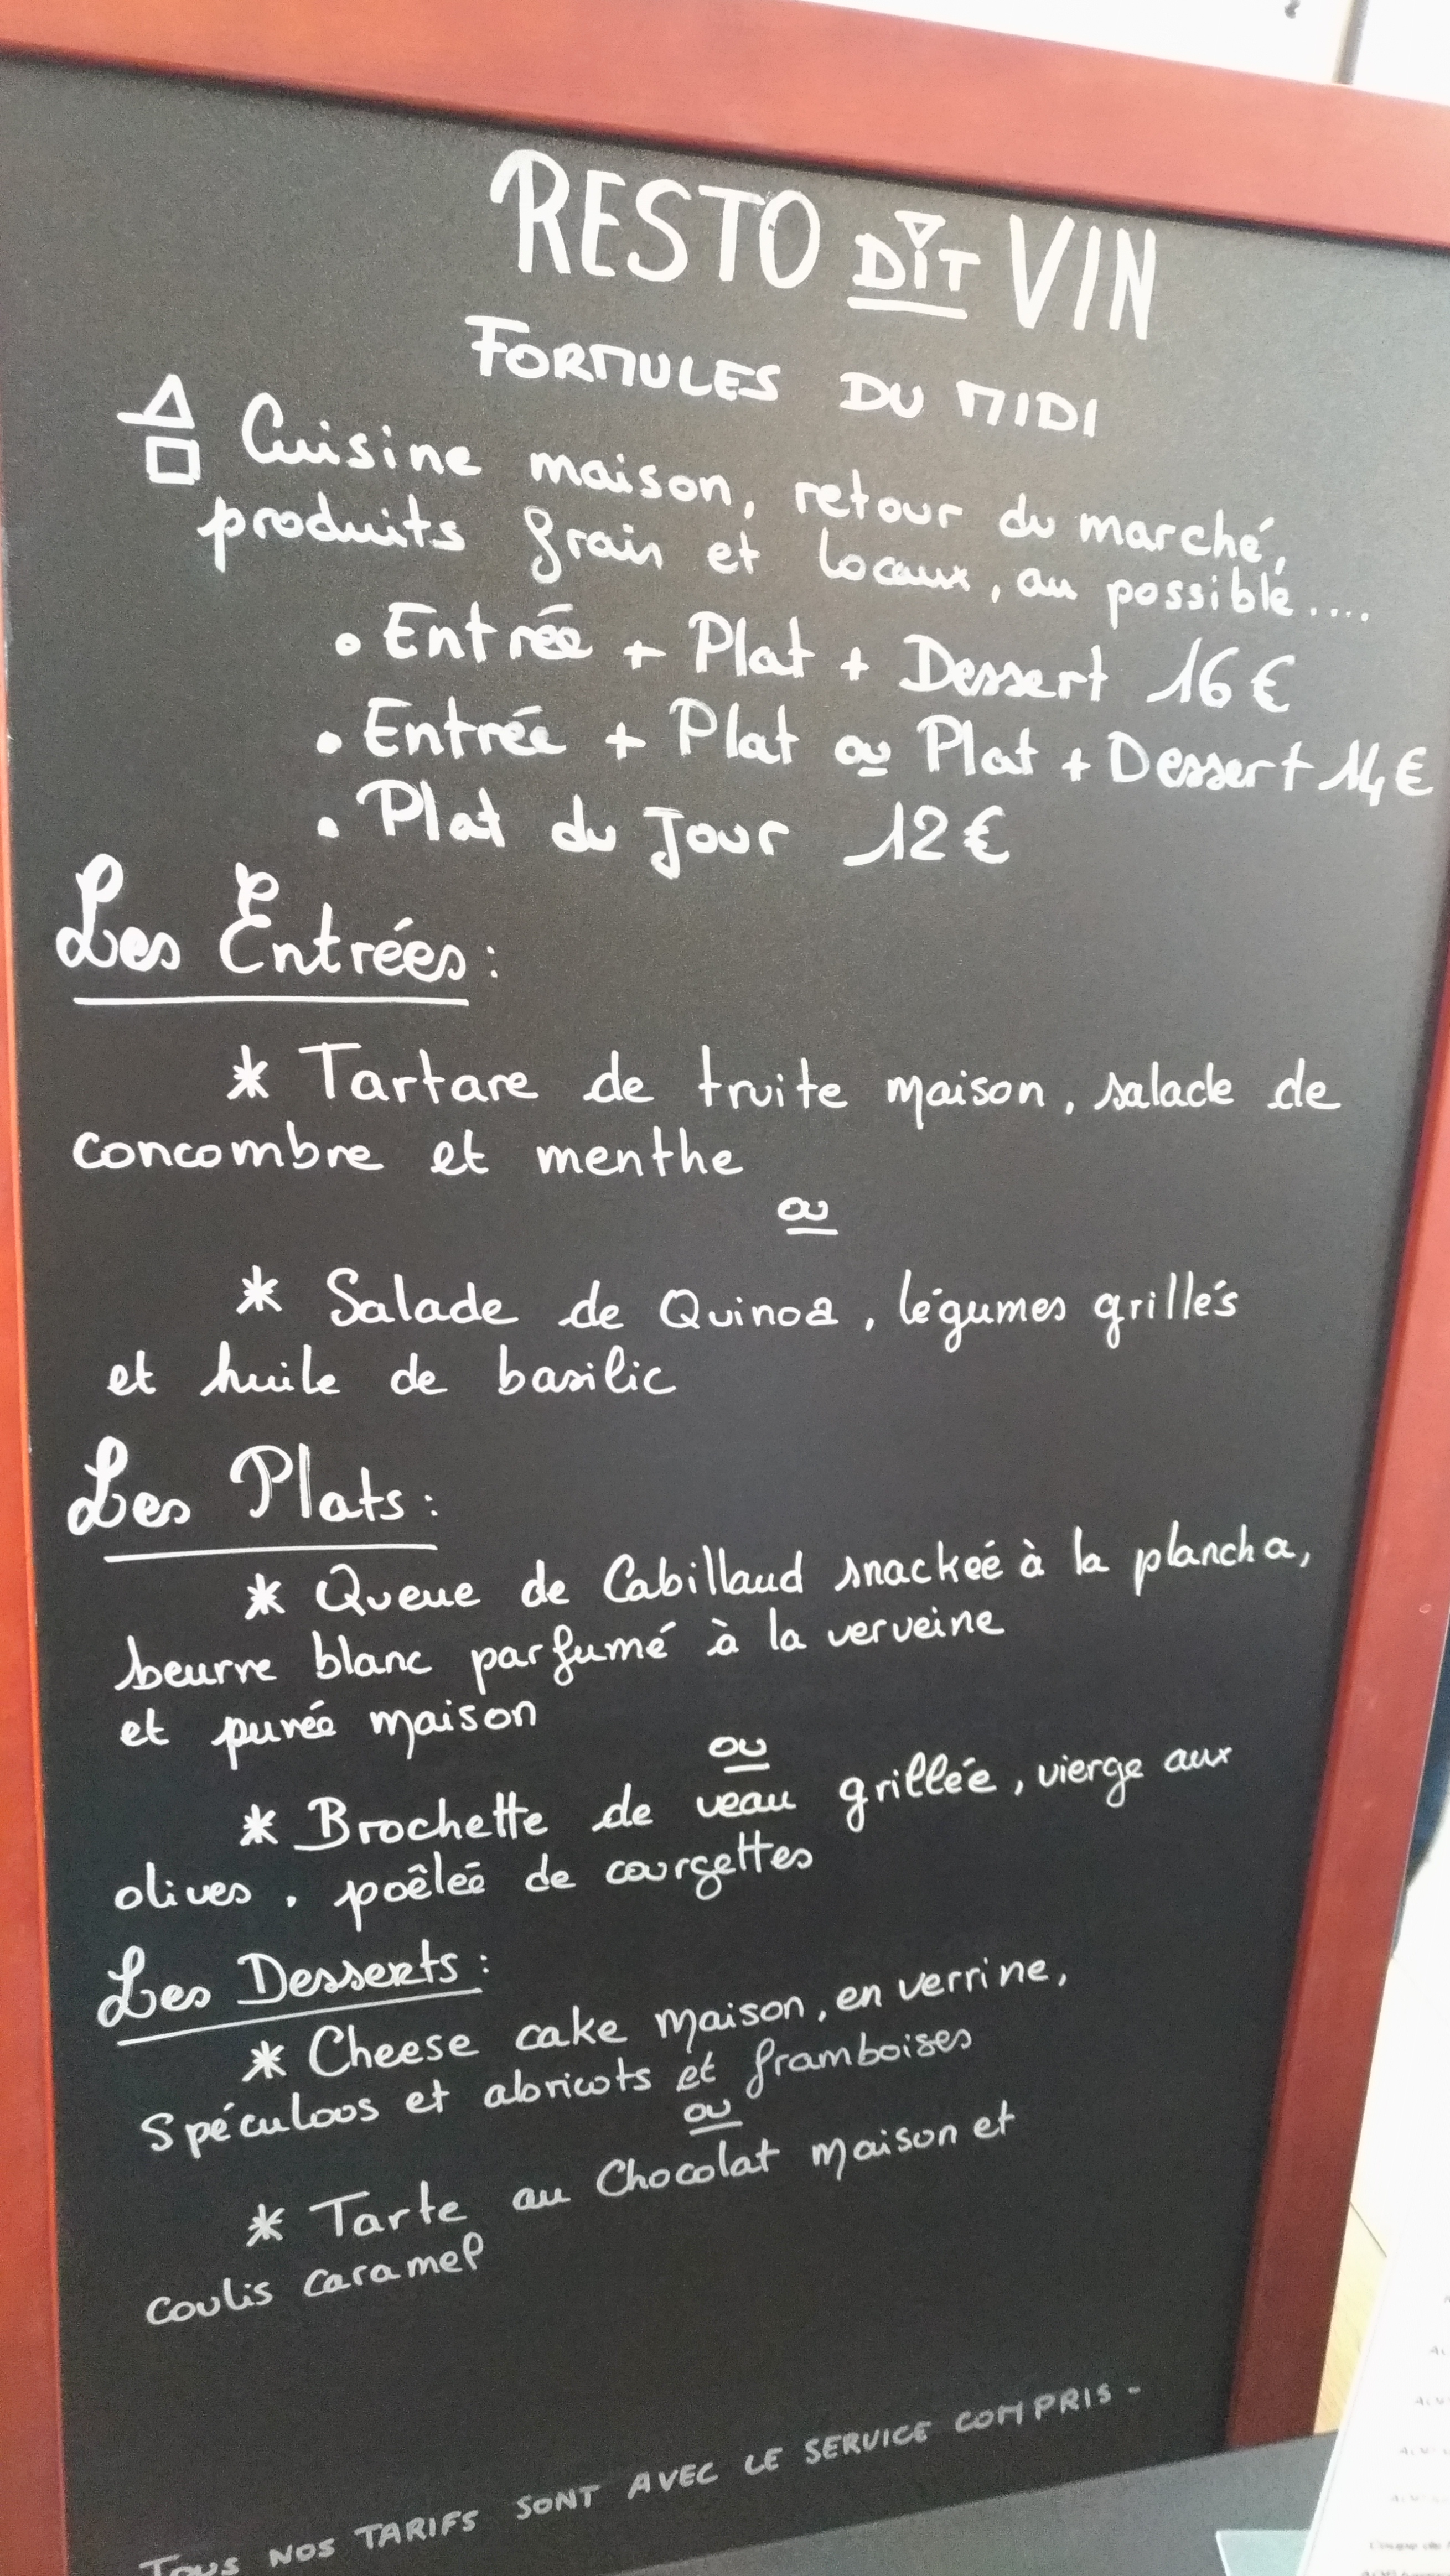 RESTO DIT VIN
FORMULES DU MIDI
Cuisine maison, retour du marché,
produits frais et locaux, au possible....
• Entrée + Plat + Dessert 16€
• Entrée + Plat ou Plat + Dessert 14€
• Plat du Jour 12€
Les Entrées :
* Tartare de truite maison, salade de
concombre et menthe
ou
* Salade de Quinoa, légumes grillés
et huile de basilic
Les Plats :
* Queue de Cabillaud snackeé à la plancha,
beurre blanc parfumé à la verveine
et purée maison
ou
* Brochette de veau grillée, vierge aux
olives, poêleé de courgettes
Les Desserts :
* Cheese cake maison, en verrine,
Spéculoos et abricots et framboises
ou
* Tarte au Chocolat maison et
coulis caramel
TOUS NOS TARIFS SONT AVEC LE SERVICE COMPRIS -